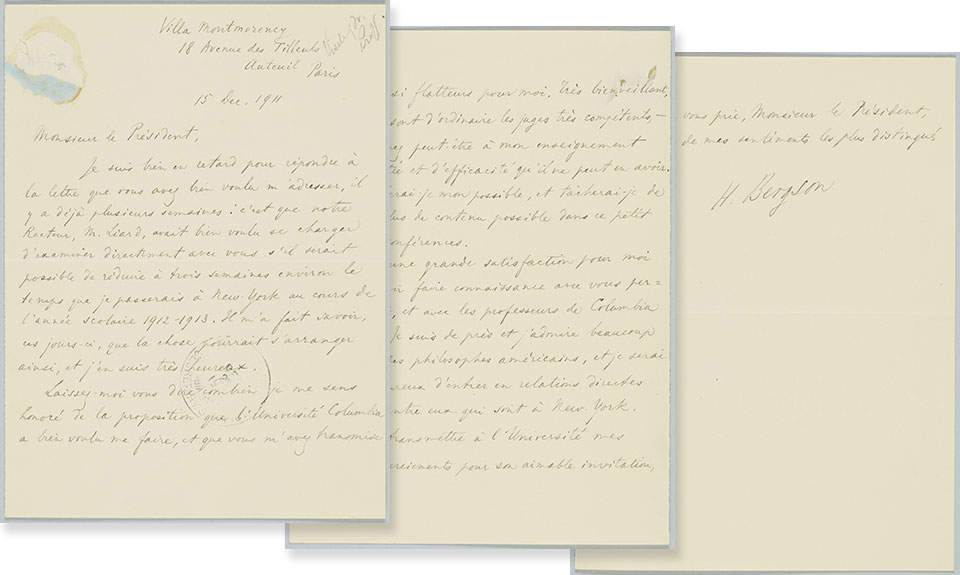 Villa Montmorency
18 Avenue des Tilleuls
Auteuil Paris
15 Dec. 1911
Monsieur le Président,
Je suis bien en retard pour répondre à
la lettre que vous avez bien voulu m'adresser, il
y a déjà plusieurs semaines : c'est que notre
Recteur, M. Liard, avait bien voulu se charger
d'examiner directement avec vous s'il serait
possible de réduire à trois semaines environ le
temps que je passerais à New-York au cours de
l'année scolaire 1912-1913. Il m'a fait savoir,
ces jours-ci, que la chose pourrait s'arranger
ainsi, et j'en suis très heureux.
Laissez-moi vous dire combien je me sens
honoré de la proposition que l'Université Columbia
a bien voulu me faire, et que vous m'avez transmise
si flatteurs pour moi. Très bienveillant,
sont d'ordinaire les juges très compétents,—
ez peut être à mon enseignement
té et d'efficacité qu'il ne peut en avoir.
rai-je mon possible, et tâcherai-je de
lus de contenu possible dans ce petit
onférences.
une grande satisfaction pour moi
faire connaissance avec vous per=
, et avec les professeurs de Columbia
Je suis de près et j'admire beaucoup
es philosophes américains, et je serai
reux d'entrer en relations directes
ntre eux qui sont à New-York.
transmettre à l'Université mes
erciements pour son aimable invitation,
vous prie, Monsieur le Président,
de mes sentiments les plus distingués
H. Bergson